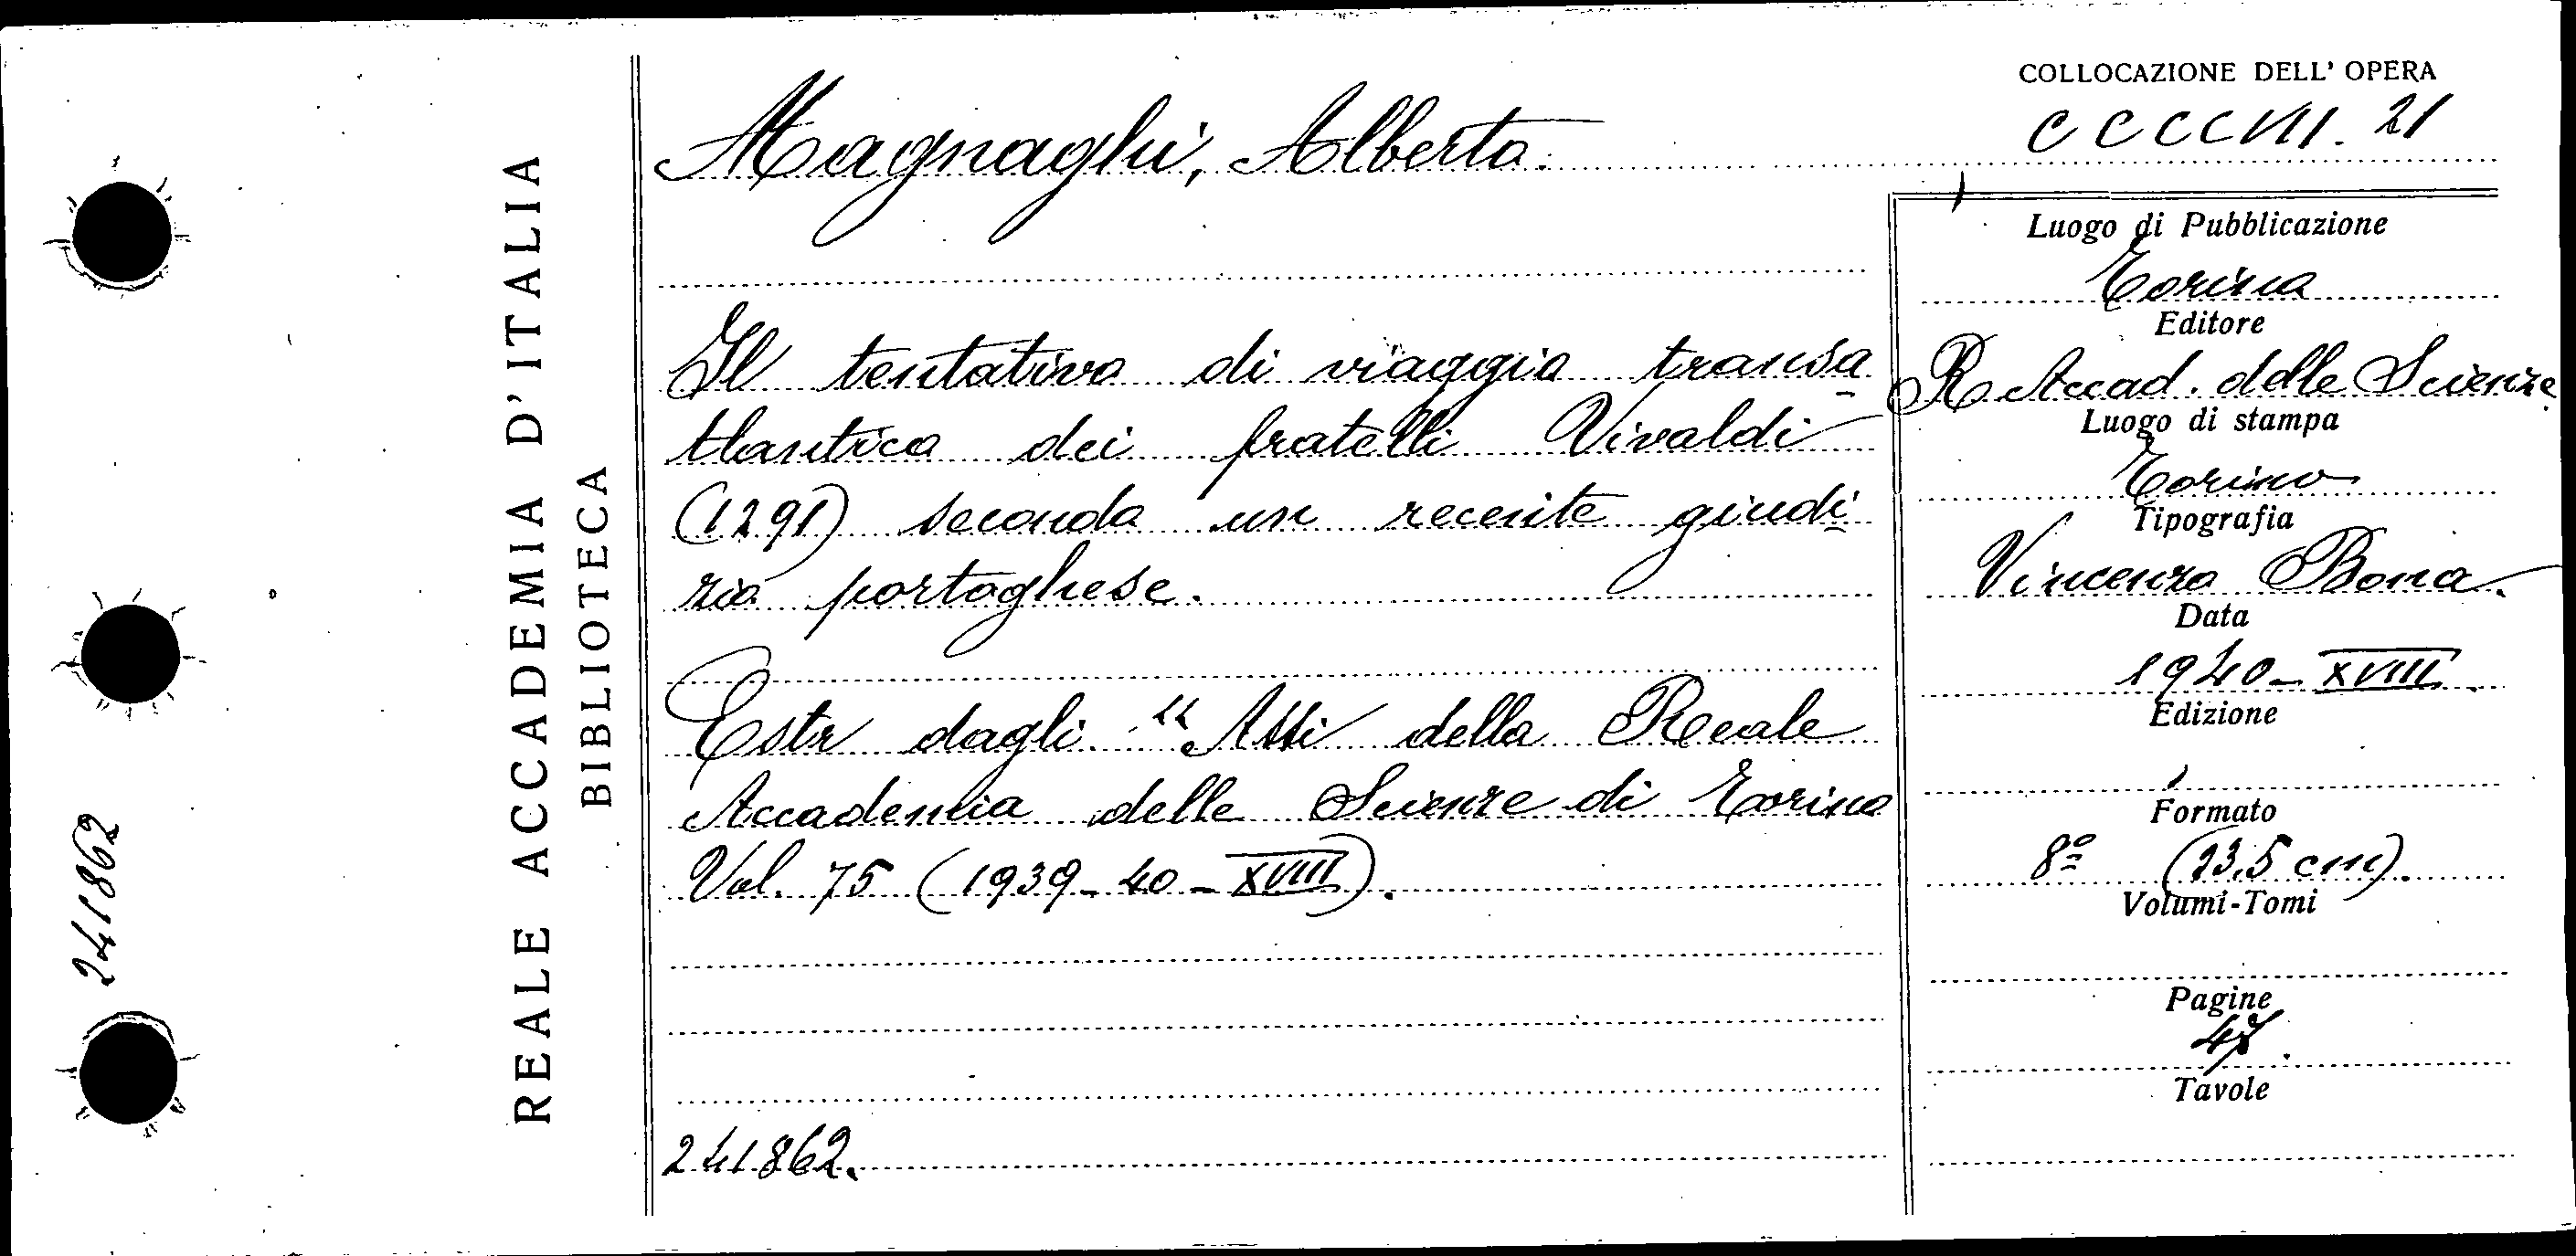 COLLOCAZIONE DELL' OPERA
CCCCVII. 21
Magnaghi, Alberto.
Il tentativo di viaggio transa
tlantico dei fratelli Vivaldi
(1291) secondo un recente giudi
zio portoghese.
Estr dagli "Atti della Reale
Accademia delle Scienze di Torino
Vol. 75 (1939-40-XVIII).
241862.
Luogo di Pubblicazione
Torino
Editore
R Accad. delle Scienze
Luogo di stampa
Torino
Tipografia
Vincenzo Bona.
Data
1940-XVIII.
Edizione
Formato
8º (23,5 cm).
Volumi-Tomi
Pagine
Tavole
REALE ACCADEMIA D'ITALIA
BIBLIOTECA
241862